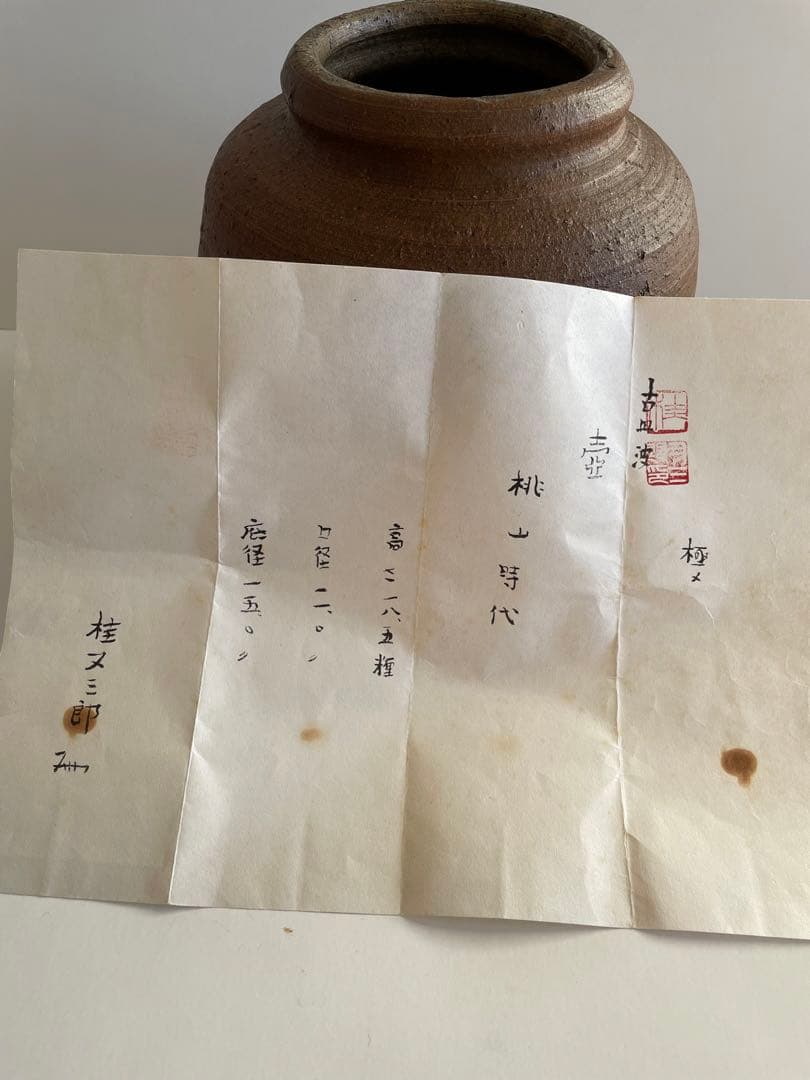 極メ
古丹波
壷
桃山時代
高さ一八、五糎
口径一一、〇〃
底径一五、〇〃
桂又三郎